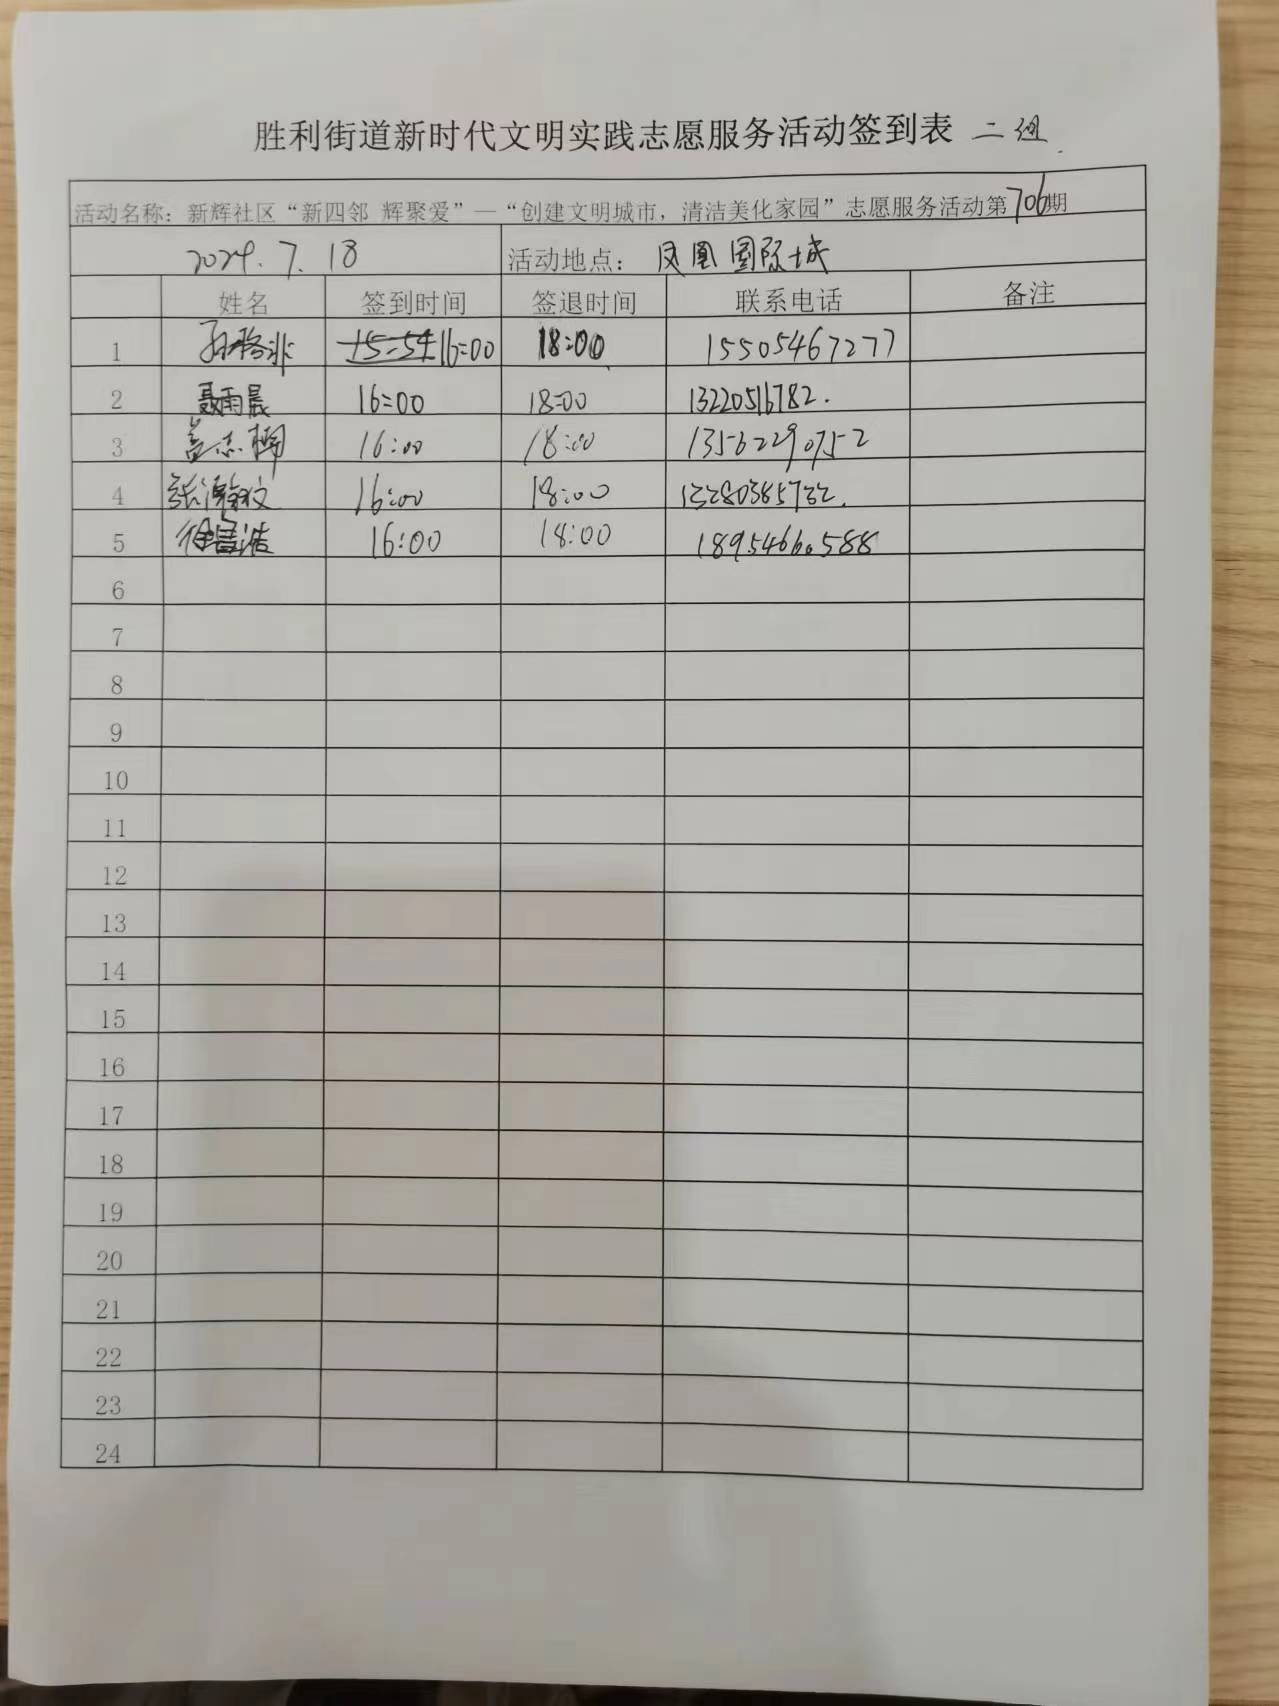 胜利街道新时代文明实践志愿服务活动签到表 二组
活动名称：新辉社区“新四邻 辉聚爱”—“创建文明城市，清洁美化家园”志愿服务活动第706期
2024.7.18 活动地点：凤凰国际城
姓名 签到时间 签退时间 联系电话 备注
1 15:54 16:00 18:00 15505467277
2 聂雨晨 16:00 18:00 13220516782.
3 盖志桐 16:00 18:00 13562290752
4 张瀚文 16:00 18:00 13280385732.
5 徐昌浩 16:00 18:00 18954660588
6
7
8
9
10
11
12
13
14
15
16
17
18
19
20
21
22
23
24